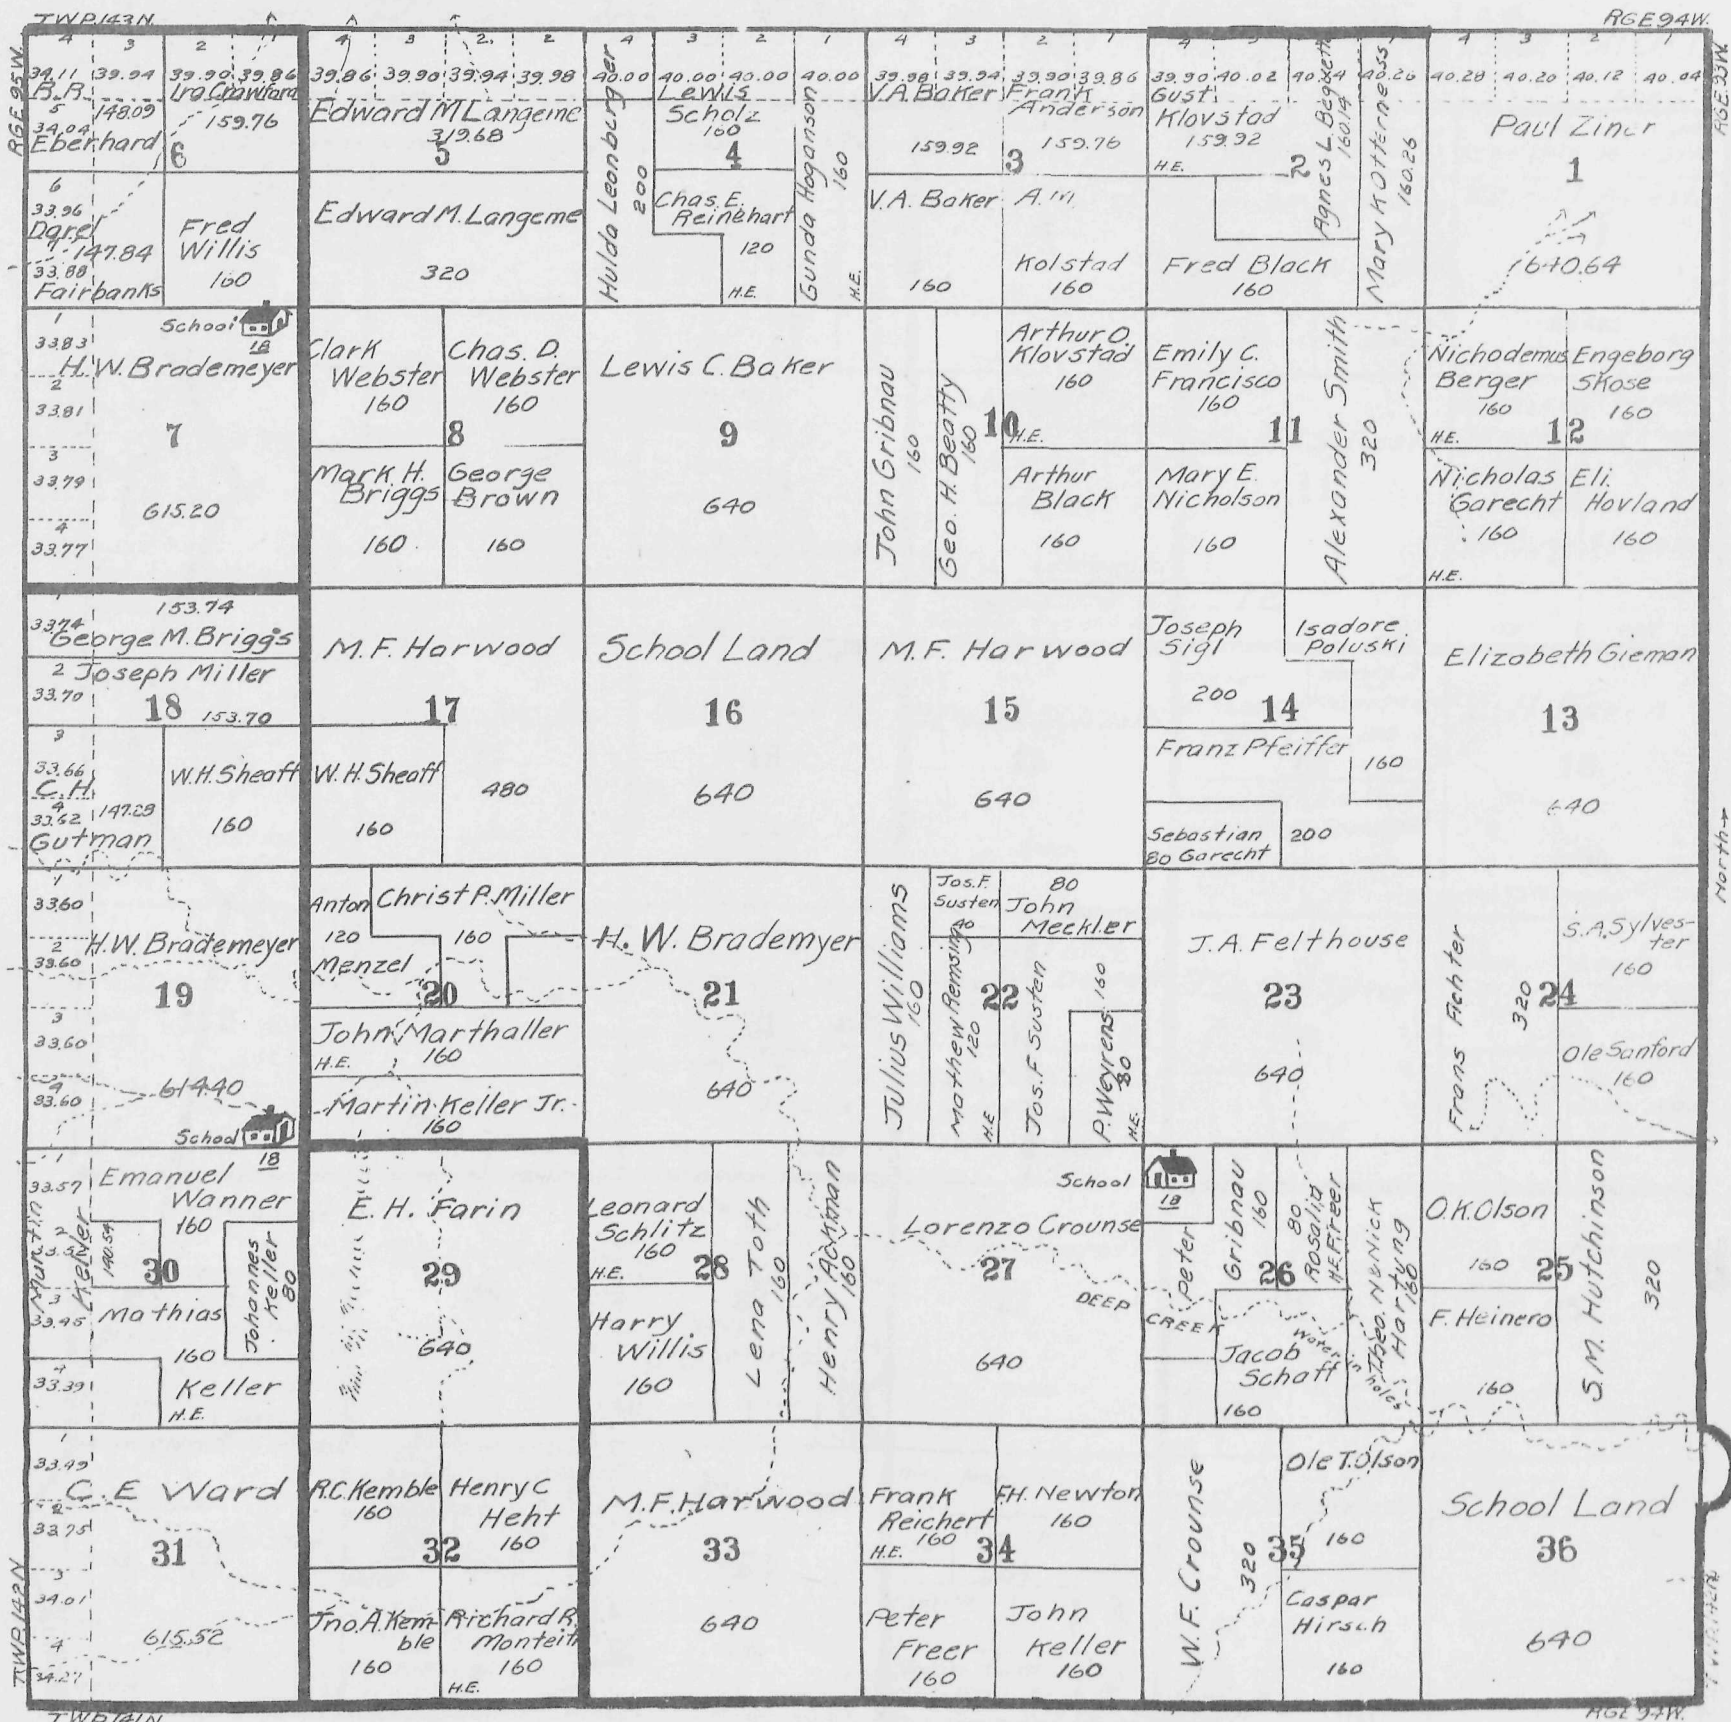 TWP.143N.
RGE94W.
RGE 95W.
RGE.93W.
4 3 2 1
34.11 39.94 39.90 39.86
B.R.
Ira Crawford
5
148.09
159.76
34.04
Eberhard
6
6
33.96
Darel
7
147.84
33.88
Fairbanks
Fred
Willis
160
4 3 2. 2
39.86 39.90 39.94 39.98
Edward M Langeme
319.68
5
Edward M. Langeme
320
4 3 2 1
40.00 40.00 40.00 40.00
Hulda Leonberger
200
Lewis
Scholz
160
4
Chas. E.
Reinehart
120
H.E.
Gunda Hoganson
160
H.E.
4 3 2 1
39.98 39.94 39.90 39.86
V.A. Baker
159.92
Frank
Anderson
159.76
3
V.A. Baker
160
A.M.
Kolstad
160
4 3 2 1
39.90 40.02 40.14 40.26
Gust
Klovstad
159.92
H.E.
2
Agnes L.
160.14
Mary Kotterness
160.26
Fred Black
160
4 3 2 1
40.28 40.20 40.12 40.04
Paul Ziner
1
640.64
1
School
18
33.83
H.W. Brademeyer
2
33.81
7
3
33.79
615.20
4
33.77
Clark
Webster
160
Chas. D.
Webster
160
8
Mark H.
Briggs
160
George
Brown
160
Lewis C. Baker
9
640
John Gribnau
160
Geo. H. Beatty
160
Arthur O.
Klovstad
160
10
H.E.
Arthur
Black
160
Emily C.
Francisco
160
11
Mary E.
Nicholson
160
Alexander Smith
320
Nichodemus
Berger
160
H.E.
Engeborg
Skose
160
12
Nicholas
Garecht
160
H.E.
Eli.
Hovland
160
1
153.74
33.74
George M. Briggs
2 Joseph Miller
33.70
18 153.70
3
33.66
C.H.
4
147.28
33.62
Gutman
W.H. Sheaff
160
M.F. Harwood
17
W.H. Sheaff
160
480
School Land
16
640
M.F. Harwood
15
640
Joseph
Sigl
200
Isadore
Poluski
160
14
Franz Pfeiffer
200
Sebastian
80 Garecht
Elizabeth Gieman
13
640
1
33.60
2
H.W. Brademeyer
33.60
19
3
33.60
4
33.60
614.40
School
18
Anton
120
Menzel
Christ P. Miller
160
20
John Marthaller
160
H.E.
Martin Keller Jr.
160
H. W. Brademyer
21
640
Julius Williams
160
Jos. F.
Susten
40
80
John
Meckler
Mathew Remsing
120
H.E
22
Jos. F Susten
160
P. Weyrens
80
H.E.
J.A. Felthouse
23
640
Frans Fichter
320
24
S.A. Sylves-
ter
160
Ole Sanford
160
North→
1
33.57
Emanuel
Wanner
160
2
Martin
Kelver
140.59
30
Johannes
Keller
80
3
33.45
Mathias
160
4
33.39
Keller
H.E.
E. H. Farin
29
640
Leonard
Schlitz
160
H.E.
28
Harry
Willis
160
Lena Toth
160
Henry Ackman
160
School
18
Lorenzo Crounse
27
640
DEEP
CREEK
Peter
Gribnau
160
80
Rosalid
H.E. Freer
26
Water in
holes
Jacob
Schaff
160
Theo. N & Nick
Hartung
160
O.K. Olson
160
25
F. Heinero
160
S.M. Hutchinson
320
1
33.49
C. E Ward
2
33.75
31
3
34.01
615.52
4
34.27
R.C. Kemble
160
Henry C
Heht
160
32
Jno. A. Kem-
ble
160
Richard R.
Monteith
160
H.E.
M.F. Harwood
33
640
Frank
Reichert
160
H.E.
F.H. Newton
160
34
Peter
Freer
160
John
Keller
160
W.F. Crounse
320
Ole T. Olson
160
35
Caspar
Hirsch
160
School Land
36
640
TWP.142N
TWP.141N
RGE 94W.